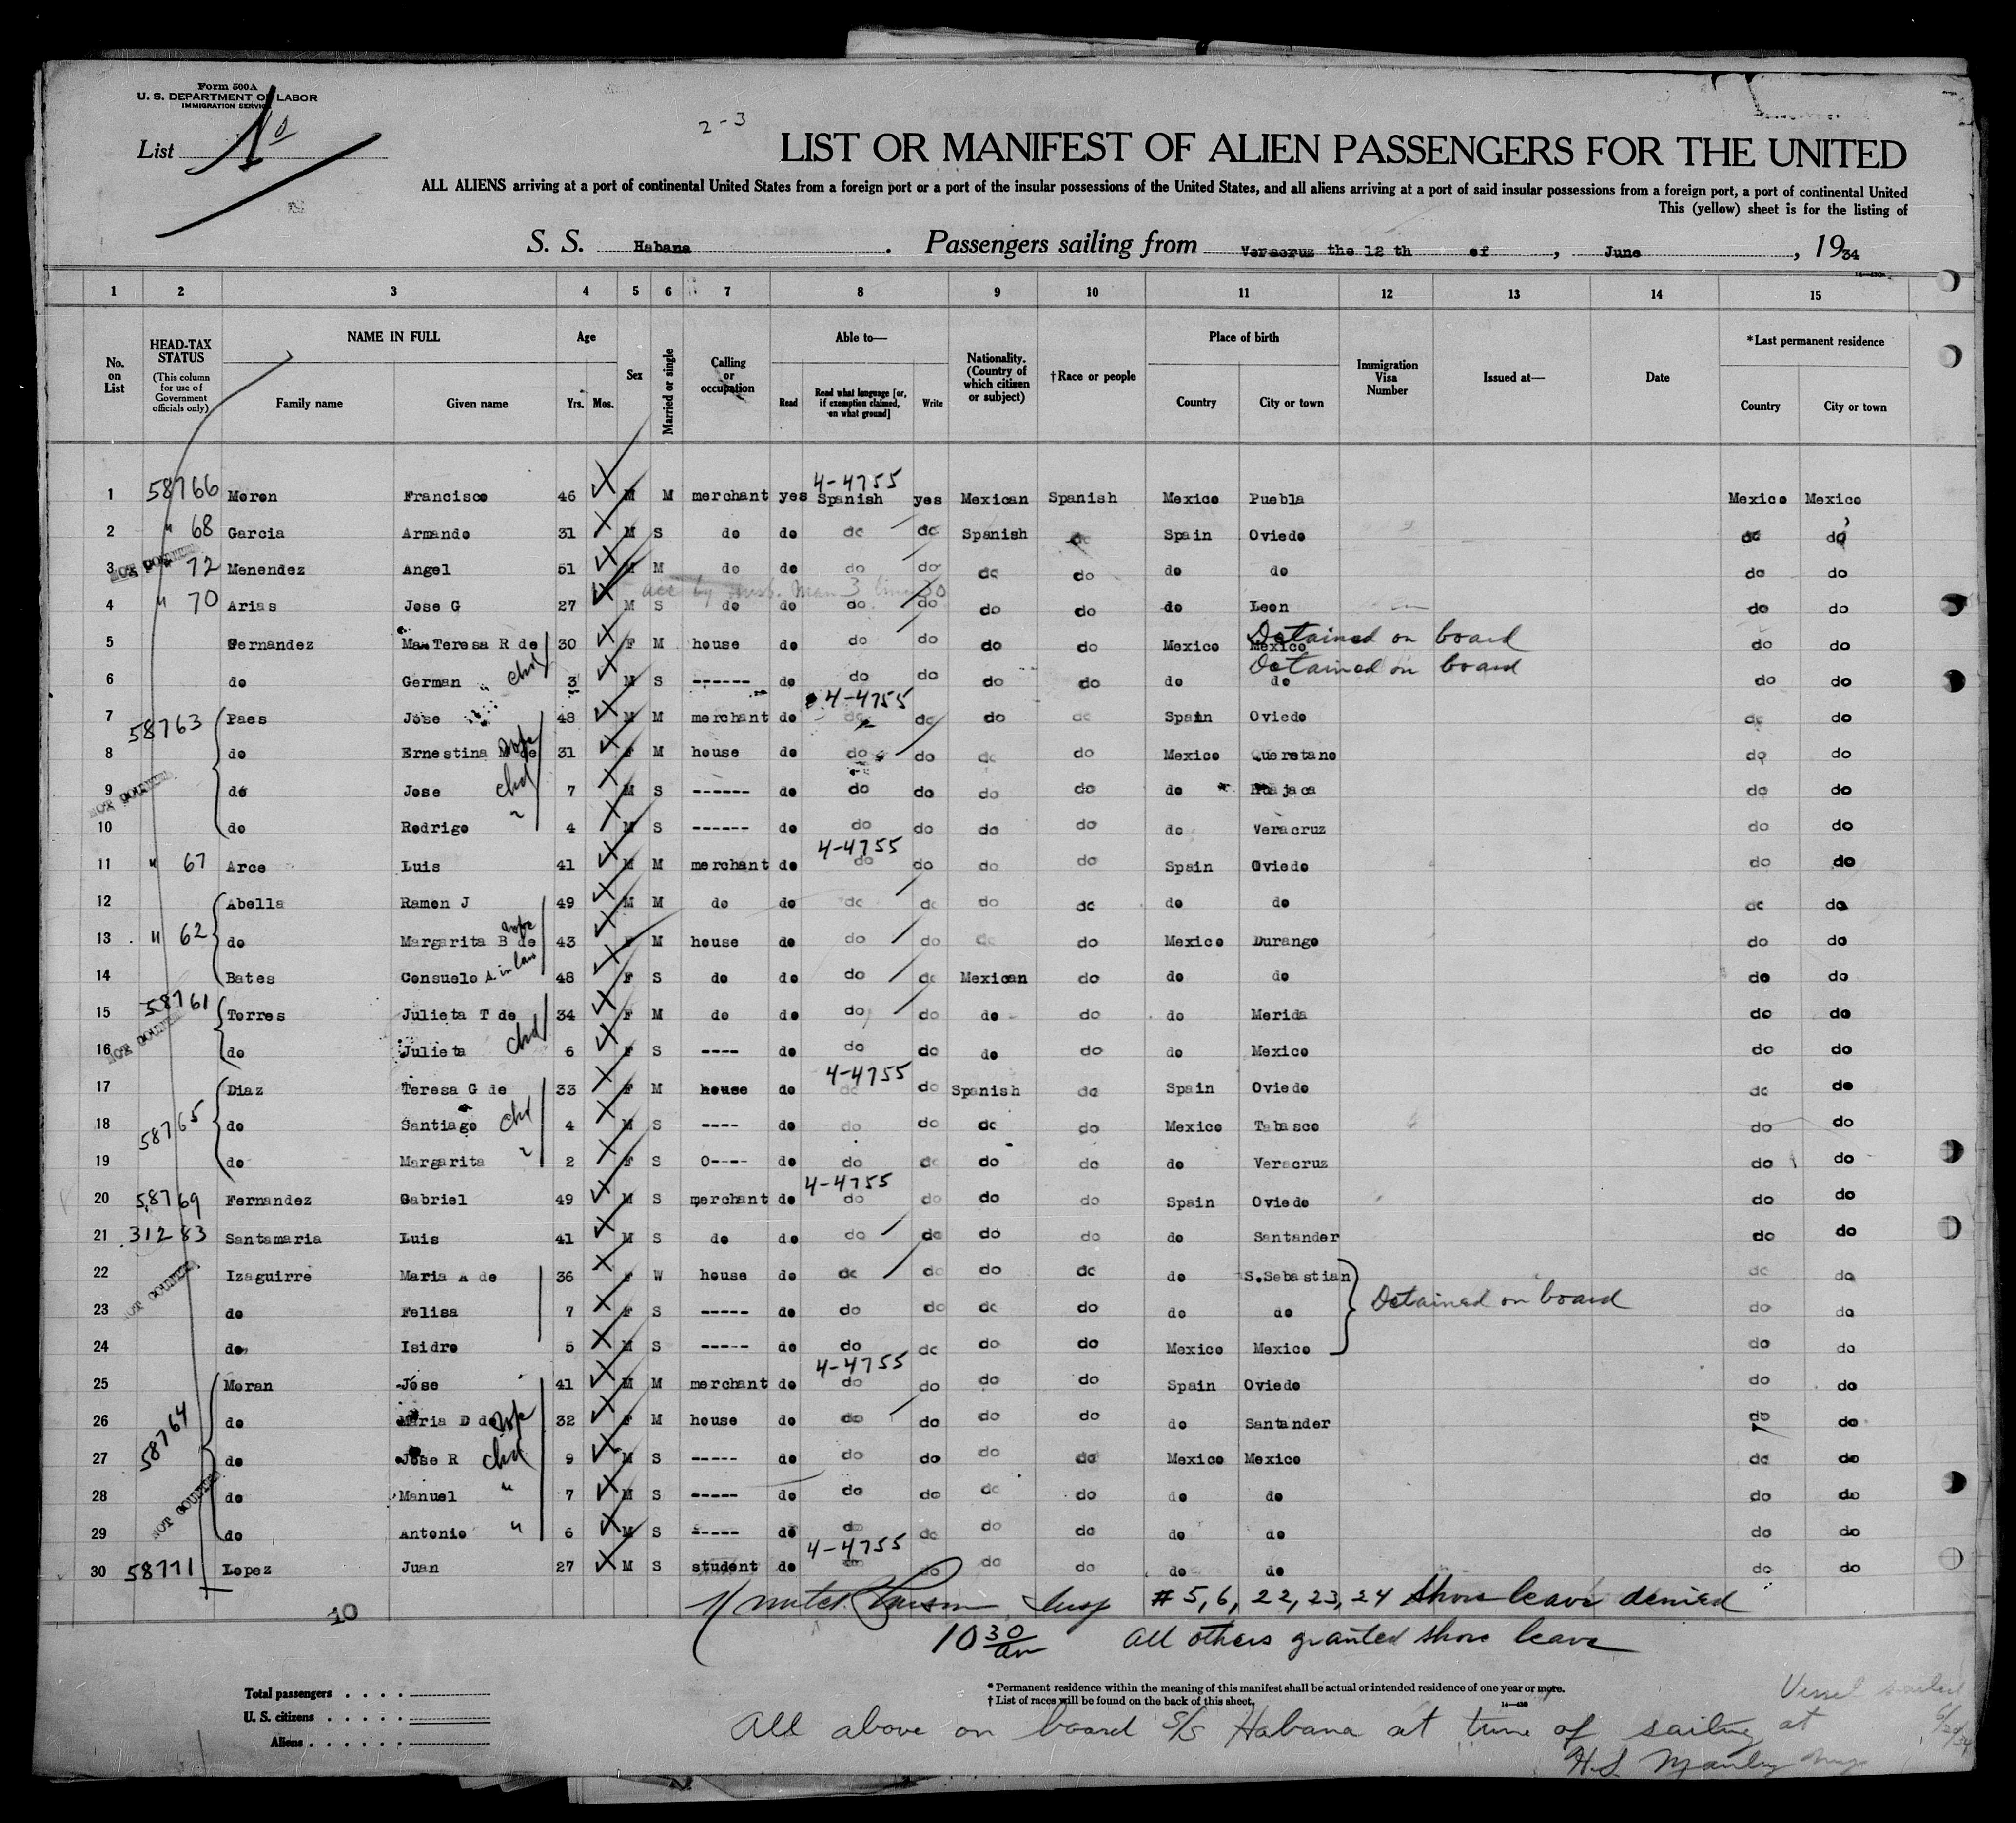 Form 500A
U. S. DEPARTMENT OF LABOR
IMMIGRATION SERVICE
2-3
List
LIST OR MANIFEST OF ALIEN PASSENGERS FOR THE UNITED
ALL ALIENS arriving at a port of continental United States from a foreign port or a port of the insular possessions of the United States, and all aliens arriving at a port of said insular possessions from a foreign port, a port of continental United
This (yellow) sheet is for the listing of
S. S. Habana. Passengers sailing from Veracruz the 12 th of, June, 1934
1 2 3 4 5 6 7 8 9 10 11 12 13 14 15
No. on List
HEAD-TAX STATUS (This column for use of Government officials only)
NAME IN FULL Family name Given name
Age Yrs. Mos.
Sex
Married or single
Calling or occupation
Able to— Read Read what language [or, if exemption claimed, on what ground] Write
Nationality. (Country of which citizen or subject)
†Race or people
Place of birth Country City or town
Immigration Visa Number
Issued at—
Date
*Last permanent residence Country City or town
4-4755
1 58766 Moron Francisco 46 M M merchant yes Spanish yes Mexican Spanish Mexico Puebla Mexico Mexico
2 " 68 Garcia Armando 31 M S do do do do Spanish do Spain Oviedo do do
NOT COUNTED
3 " 72 Menendez Angel 51 M M do do do do do do do do do do
4 " 70 Arias Jose G 27 M S do do do do do do do Leon do do
Detained on board
5 Fernandez Ma Teresa R de 30 F M house do do do do do Mexico Mexico do do
Detained on board
6 do German chd 3 M S ------ do do do do do do do do do
4-4755
7 58763 Paes Jose 48 M M merchant do do do do do Spain Oviedo do do
8 do Ernestina M de wife 31 F M house do do do do do Mexico Queretano do do
NOT COUNTED
9 do Jose chd 7 M S ------ do do do do do do Huajaca do do
10 do Rodrigo " 4 M S ------ do do do do do do Veracruz do do
4-4755
11 " 67 Arce Luis 41 M M merchant do do do do do Spain Oviedo do do
12 Abella Ramon J 49 M M do do do do do do do do do do
13 " 62 do Margarita B de wife 43 F M house do do do do do Mexico Durango do do
14 Bates Consuelo s. in law 48 F S do do do do Mexican do do do do do
15 58761 Torres Julieta T de 34 F M do do do do do do do Merida do do
NOT COUNTED
16 do Julieta chd 6 F S ---- do do do do do do Mexico do do
4-4755
17 Diaz Teresa G de 33 F M house do do do Spanish do Spain Oviedo do do
18 58765 do Santiago chd 4 M S ---- do do do do do Mexico Tabasco do do
19 do Margarita " 2 F S 0---- do do do do do do Veracruz do do
4-4755
20 58769 Fernandez Gabriel 49 M S merchant do do do do do Spain Oviedo do do
21 31283 Santamaria Luis 41 M S do do do do do do do Santander do do
22 Izaguirre Maria A de 36 F W house do do do do do do S.Sebastian do do
NOT COUNTED
23 do Felisa 7 F S ----- do do do do do do do Detained on board do do
24 do, Isidro 5 M S ----- do do do do do Mexico Mexico do do
4-4755
25 Moran Jose 41 M M merchant do do do do do Spain Oviedo do do
26 58764 do Maria D de wife 32 F M house do do do do do do Santander do do
27 do Jose R chd 9 M S ----- do do do do do Mexico Mexico do do
28 do Manuel " 7 M S ----- do do do do do do do do do
NOT COUNTED
29 do Antonio " 6 M S ----- do do do do do do do do do
4-4755
30 58771 Lopez Juan 27 M S student do do do do do do do do do
Insp # 5, 6, 22, 23, 24 Shore leave denied
10
10 30 am All others granted shore leave
Total passengers
U. S. citizens
Aliens
* Permanent residence within the meaning of this manifest shall be actual or intended residence of one year or more.
† List of races will be found on the back of this sheet.
14—430
Vessel sailed
All above on board S/S Habana at time of sailing at
H.S. Manley Insp